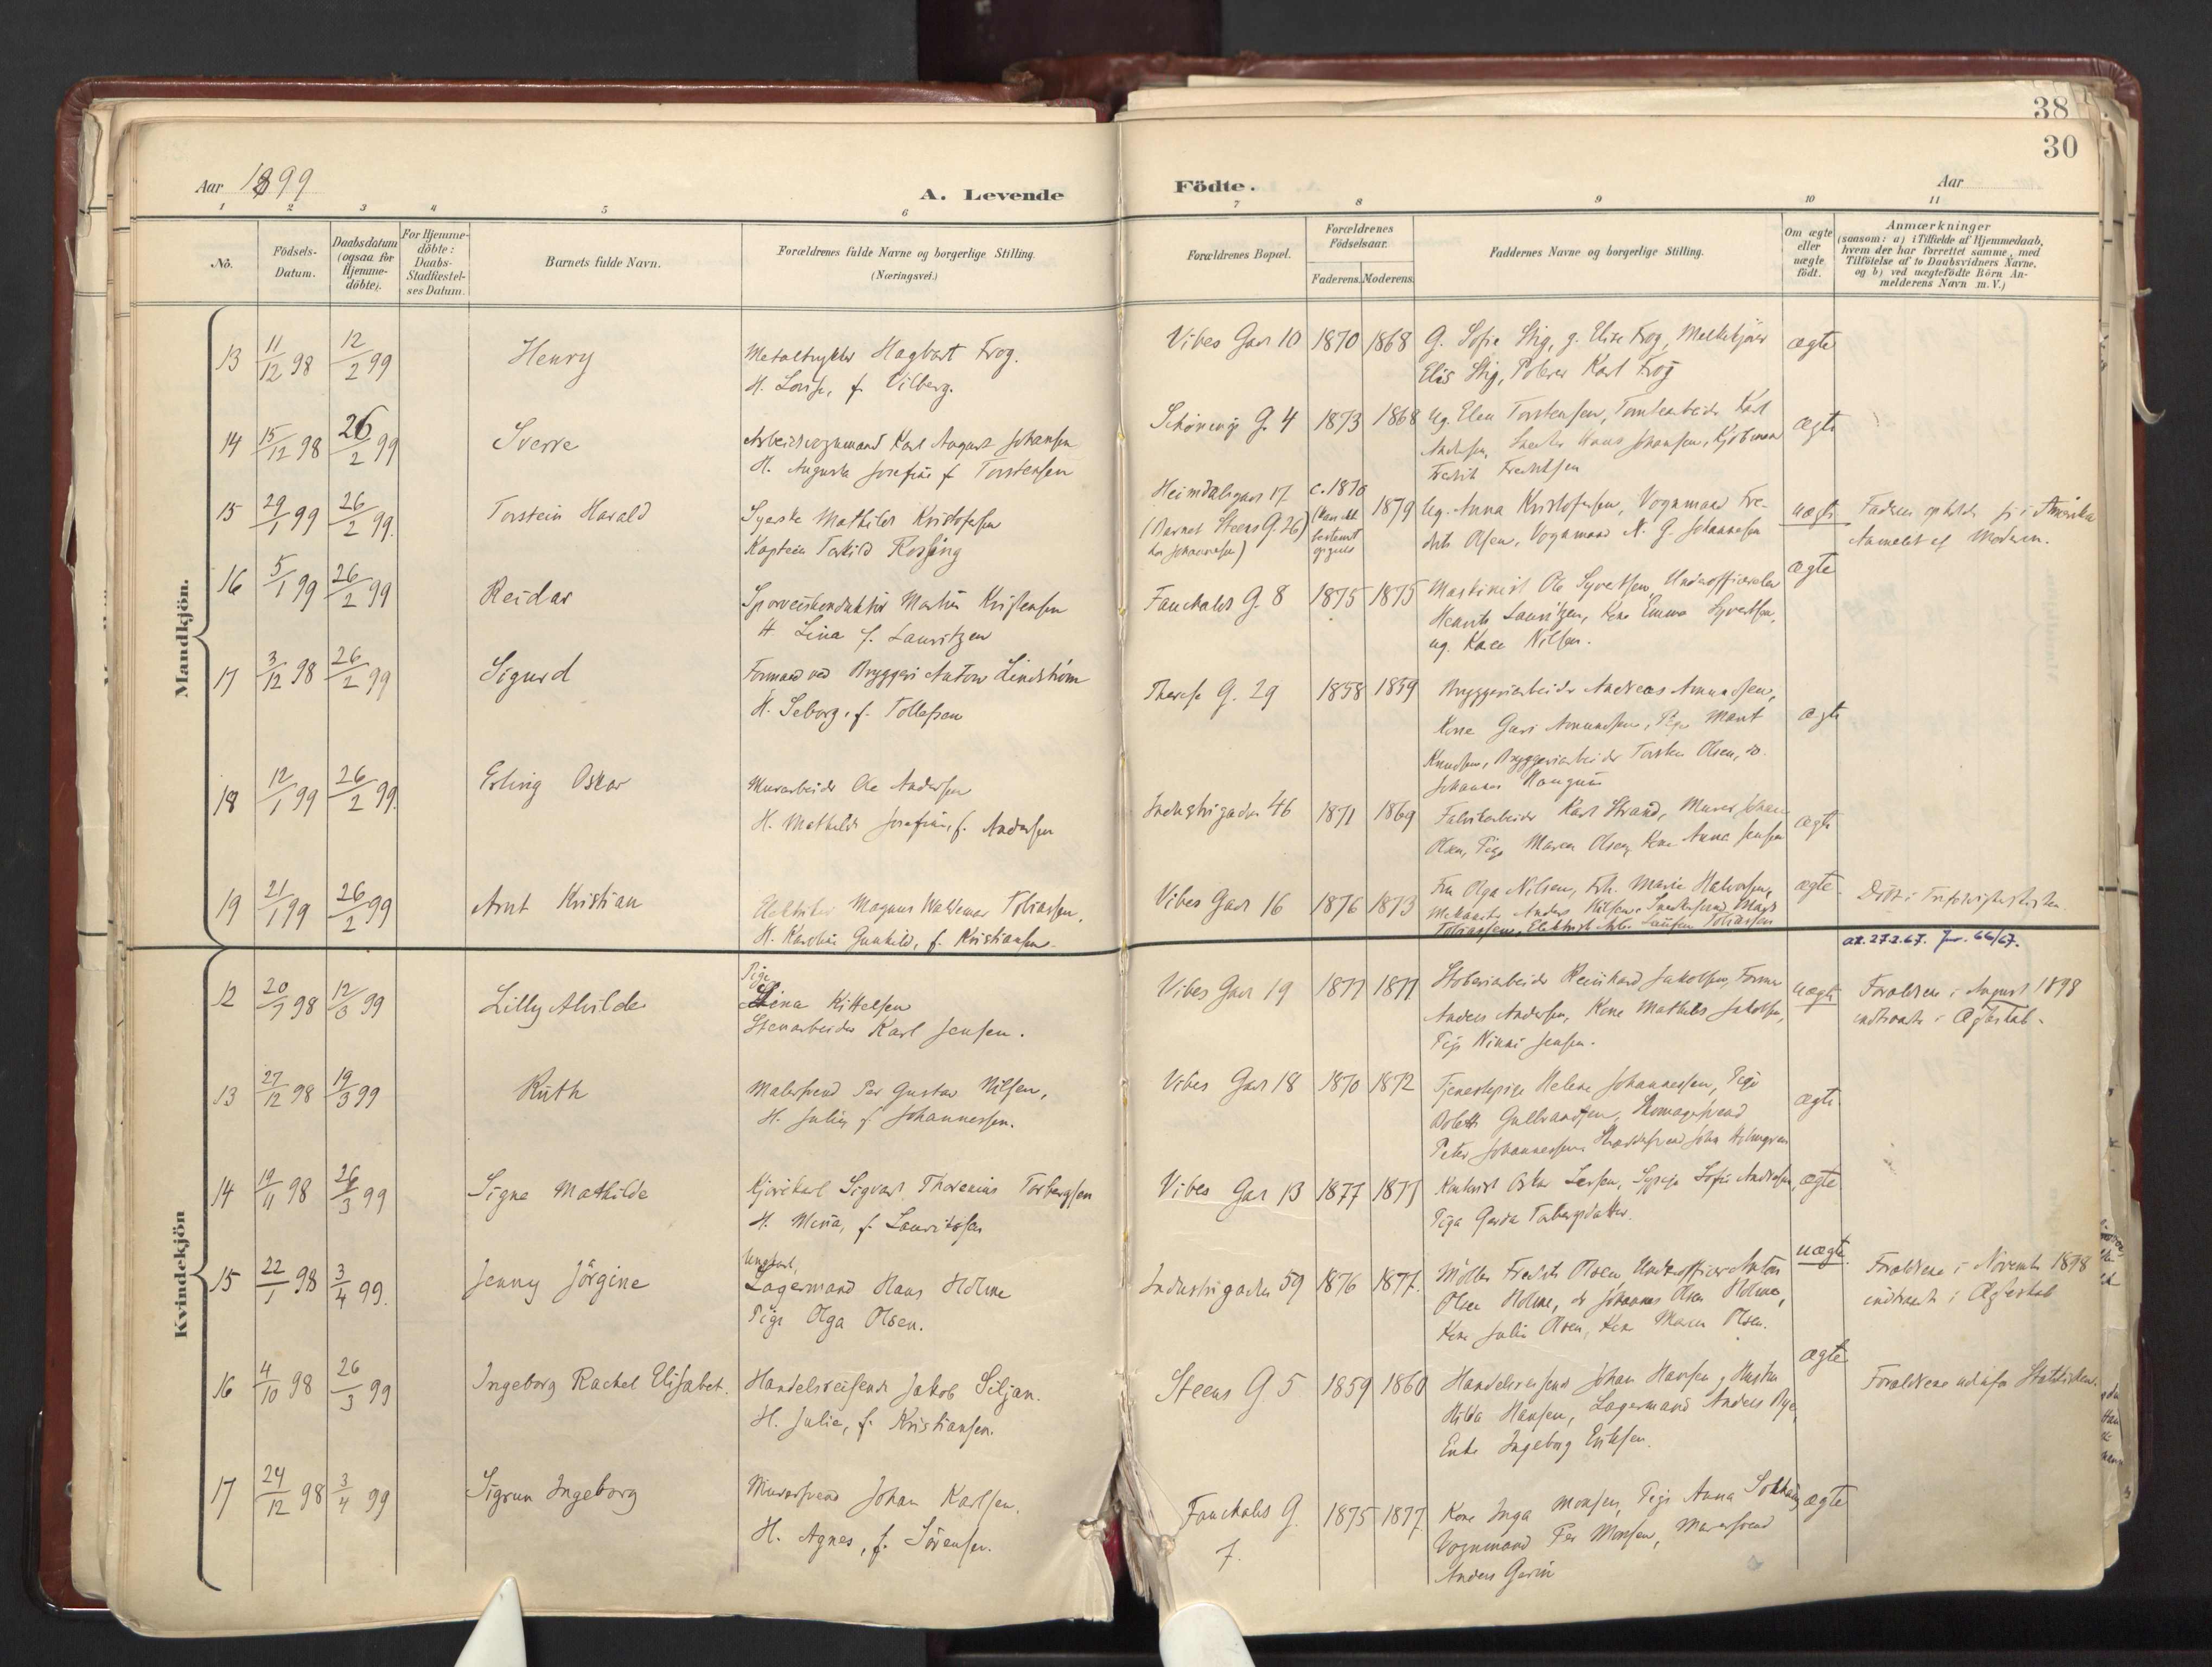 38
30
Aar 1899
A. Levende
Födte.
Aar
1 2 3 4 5 6 7 8 9 10 11
No.
Födsels-
Datum.
Daabsdatum
(ogsaa for
Hjemme-
döbte).
For Hjemme-
döbte:
Daabs-
Stadfæstel-
ses Datum.
Barnets fulde Navn.
Forældrenes fulde Navne og borgerlige Stilling
(Næringsvei.)
Forældrenes Bopæl.
Forældrenes
Födselsaar.
Faderens. Moderens.
Faddernes Navne og borgerlige Stilling.
Om ægte
eller
uægte
födt.
Anmærkninger
(saasom: a) i Tilfælde af Hjemmedaab,
hvem der har forrettet samme, med
Tilföielse af to Daabsvidners Navne,
og b) ved uægtefödte Börn An-
melderens Navn m. V.)
Mandkjön.
13 11/12 98 12/2 99 Henry Hagbart Frog. Vibes Gar 10 1870 1868 G. Sofie Stig, g. Elise Frog, ægte
H. Lovise, f. Vilberg. Elis Stig, Polerer Karl Frog
14 15/12 98 26/2 99 Sverre Arbeidsvognmand Karl August Johansen Schönings G. 4 1873 1868 Ug. Elen Torstensen, Tomtearbeider Karl ægte
H. Augusta Josefine f. Torstensen Hans Johansen, Kjöbmand
Fredrik Fredriksen
15 29/1 99 26/2 99. Torstein Harald Syerske Mathilde Kristofersen Heimdalsgaden 17 c. 1870 1879 Ug. Anna Kristofersen, Vognmand Fre- uægte
Kaptein Terkild Rossing (Barnet Steens G. 26) drik Olsen, Vognmand N. G. Johannesen
hos Johannesen) (kan ikke bestemt opgives
Faderen opholder sig i Amerika
Anmeldt af Moderen.
16 5/1 99 26/2 99 Reidar Sporveiskonduktör Martin Kristensen Fauchalds G. 8 1875 1875 Maskinist Ole Syvertsen, Underofficerselev ægte
H. Lina f. Lauritzen Henrik Lauritzen, Kone Emma Syvertsen,
ug. Kaia Nilsen.
17 3/12 98 26/2 99 Sigurd Formand ved Bryggeri Anton Lindström Therese G. 29 1858 1859 Bryggeriarbeider Andreas Amundsen, ægte
H. Seborg, f. Tollefsen Kone Guri Amundsen, Pige Marit
Knudsen, Bryggeriarbeider Torsten Olsen, do.
Johannes Haugum
18 12/1 99 26/2 99. Erling Oskar Murarbeider Ole Andersen Industrigaden 46 1871 1869 Fabrikarbeider Karl Strand, Murer Johan ægte
H. Mathilde Josefine, f. Andersen Olsen, Pige Maren Olsen, Kone Anna Jensen
19 21/1 99 26/2 99 Arnt Kristian Elektriker Magnus Waldemar Tobiassen, Vibes Gade 16 1876 1873 Fru Olga Nilsen, Frk. Marie Halvorsen, ægte
H. Karoline Gunhild, f. Kristiansen. Mekaniker Anders Nilsen, Snedkersvend Mads
Tobiassen, Elektrisk Arb. Laurits Tobiassen
at. 27.2.67. Jnr. 66/67.
Kvindekjön
12 20/7 98 12/3 99 Lilly Alvilde Pige
Lina Kittelsen Vibes Gar 19 1877 1877 Stoberiarbeider Reinhard Jakobsen, Former uægte
Stenarbeider Karl Jensen. Anders Andersen, Kone Mathilde Jakobsen,
Pige Nikki Jensen.
Forældrene i August 1898
indtraadt i Ægteskab.
13 27/12 98 19/3 99 Ruth Malersvend Per Gustav Nilsen, Vibes Gade 18 1870 1872 Tjenestepige Helene Johannessen, Pige ægte.
H. Julie, f. Johannessen. Bolette Gulbrandsen, Skomagersvend
Peter Johannessen, John Holmgren
14 19/11 98 26/3 99 Signe Mathilde Kjörekarl Sigvart Thorenius Torbergsen Vibes Gar 13 1877 1877 Kontorist Oskar Larsen, Sypige Sofie Andresen ægte
H. Mina, f. Lauritsen Pige Gerda Torbergsdatter.
15 22/1 98 3/4 99. Jenny Jörgine Ungkarl,
Lagermand Hans Holme Industrigaden 59 1876 1877. Möller Fredrik Olsen, Underofficer Anton uægte.
Pige Olga Olsen. Olsen Holme, do Johannes Olsen Holme,
Kone Julie Olsen, Kone Maren Olsen.
Forældrene i November 1898
indtraadt i Ægteskab
16 4/10 98 26/3 99 Ingeborg Rachel Elisabet. Handelsreisende Jakob Siljan. Steens G. 5 1859 1860 Handelsreisende Johan Hansen, Hustru ægte
H. Julie, f. Kristiansen. Hilda Hansen, Lagermand Anders Rye,
Enke Ingeborg Eriksen.
Forældrene udenfor Statskirken.
17 24/12 98 3/4 99 Sigrun Ingeborg Murersvend Johan Karlsen, Fauchalds G. 1875 1877. Kone Inga Monsen, Pige Anna ægte
H. Agnes, f. Sörensen. 7. Vognmand Per Monsen, Murersvend
Anders Gevin